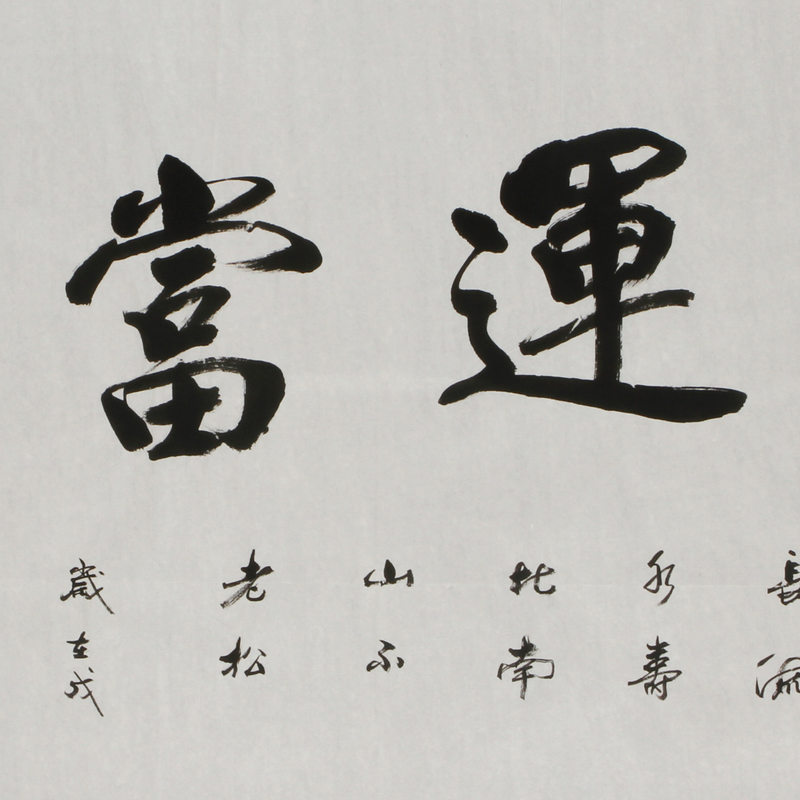 運當
長流
水壽
比南
山不
老松
歲在戊